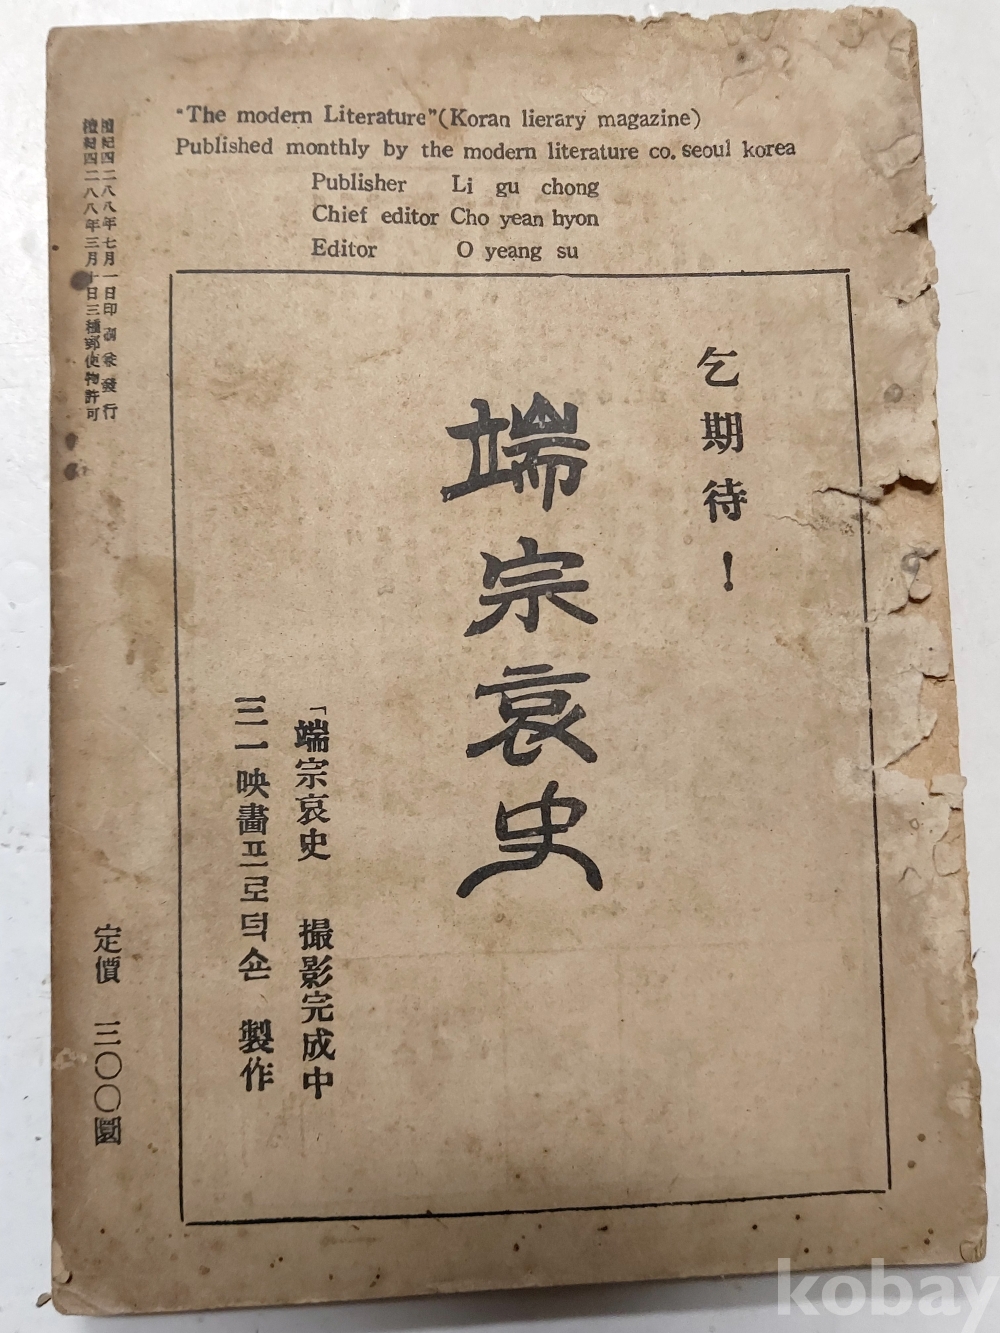 "The modern Literature"(Koran lierary magazine)
Published monthly by the modern literature co. seoul korea
Publisher Li gu chong
Chief editor Cho yean hyon
Editor O yeang su
乞期待!
端宗哀史
「端宗哀史 撮影完成中
三一映畵프로덕숀 製作
檀紀四二八八年七月一日印刷發行
檀紀四二八八年三月十日三種郵便物許可
定價 三〇〇圜
kobay